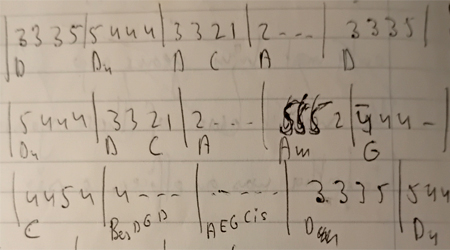 |3335|5444|3321|2---|3335|
D D4 D C A D
|5444|3321|2---|2|444-|
D4 D C A Am G
|4454|4---|-----|3.335|544
C BesDGD AEGCis D D4